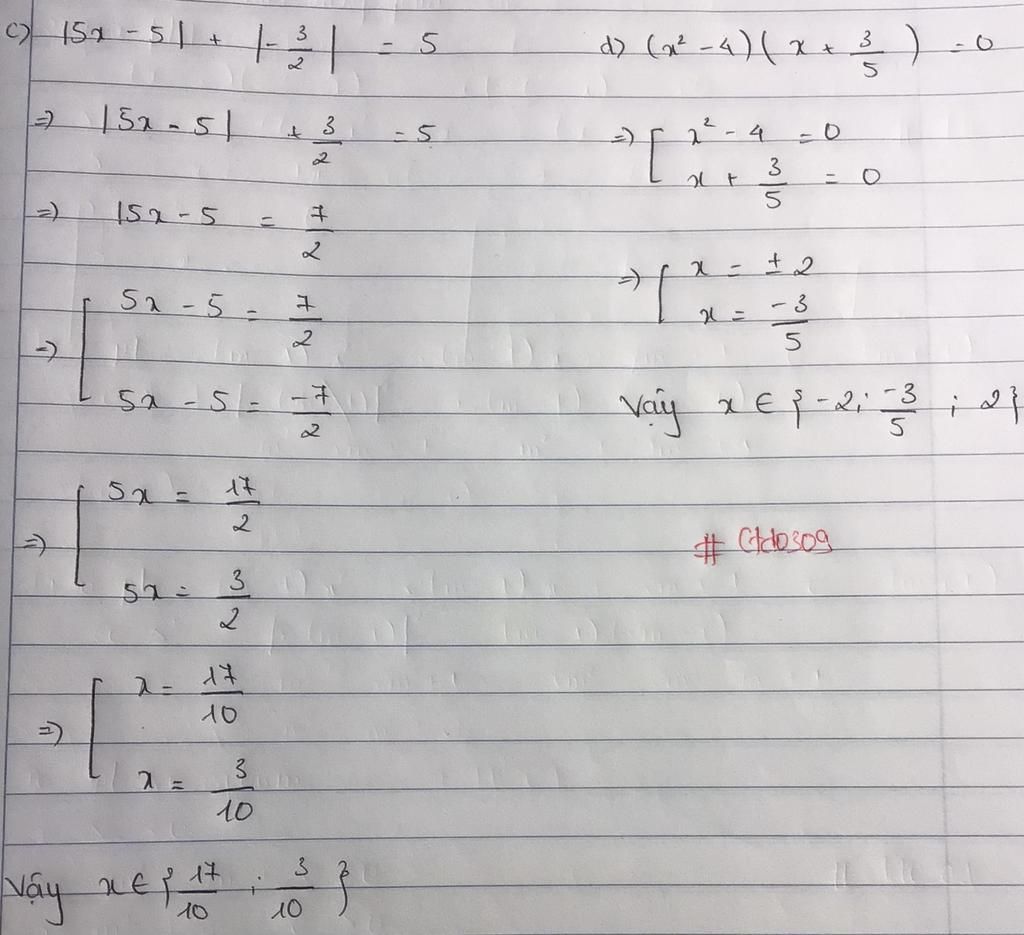 c) |5x - 5| + |-3/2| = 5
=> |5x - 5| + 3/2 = 5
=> |5x - 5 = 7/2
=> [ 5x - 5 = 7/2
5x - 5 = -7/2
=> [ 5x = 17/2
5x = 3/2
=> [ x = 17/10
x = 3/10
Vậy x ∈ {17/10 ; 3/10}
d) (x² - 4)(x + 3/5) = 0
=> [ x² - 4 = 0
x + 3/5 = 0
=> [ x = ± 2
x = -3/5
Vậy x ∈ {-2; -3/5 ; 2}